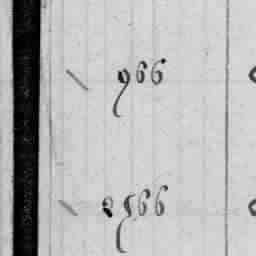 966
2566